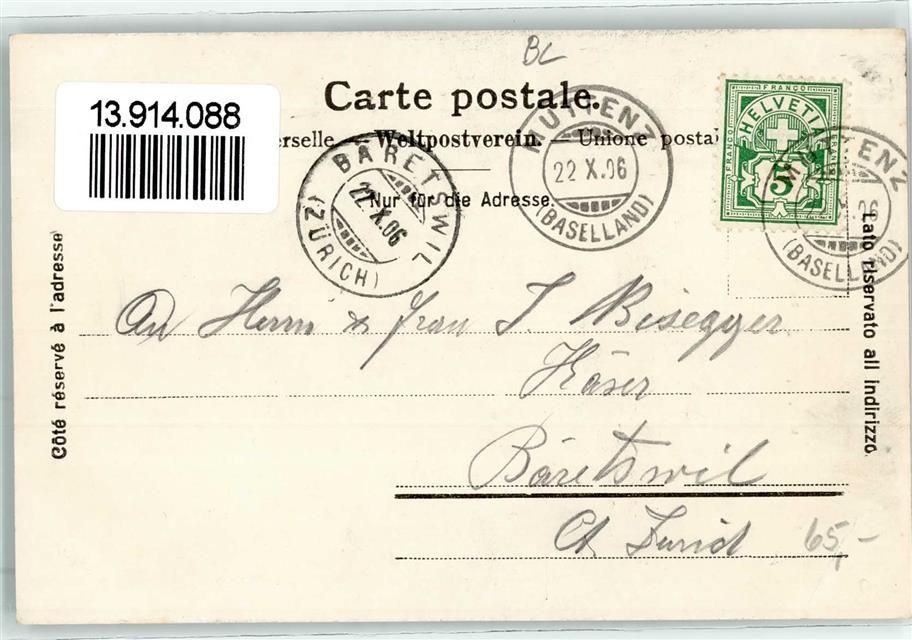 BL
13.914.088
Carte postale.
erselle. – Weltpostverein. – Unione postal
Nur für die Adresse.
BÄRETSWIL
22.X.06
(ZÜRICH)
MUTTENZ
22 X.06
(BASELLAND)
FRANCO
HELVETIA
FRANCO
FRANCO
5
MUTTENZ
06
(BASELLAND)
Côté réservé à l'adresse
Lato riservato all indirizzo
An Herrn & Frau J. Bisegger
Käser
Bäretswil
Ct. Zürich
65,–